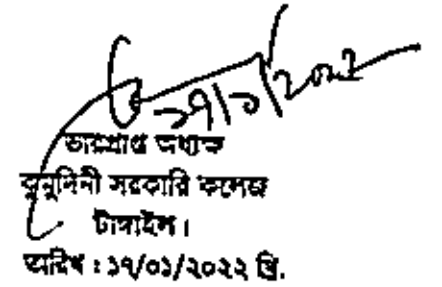 ১৭/১/২০২২
ভারপ্রাপ্ত অধ্যক্ষ
কুমুদিনী সরকারি কলেজ
টাঙ্গাইল।
তারিখ : ১৭/০১/২০২২ খ্রি.